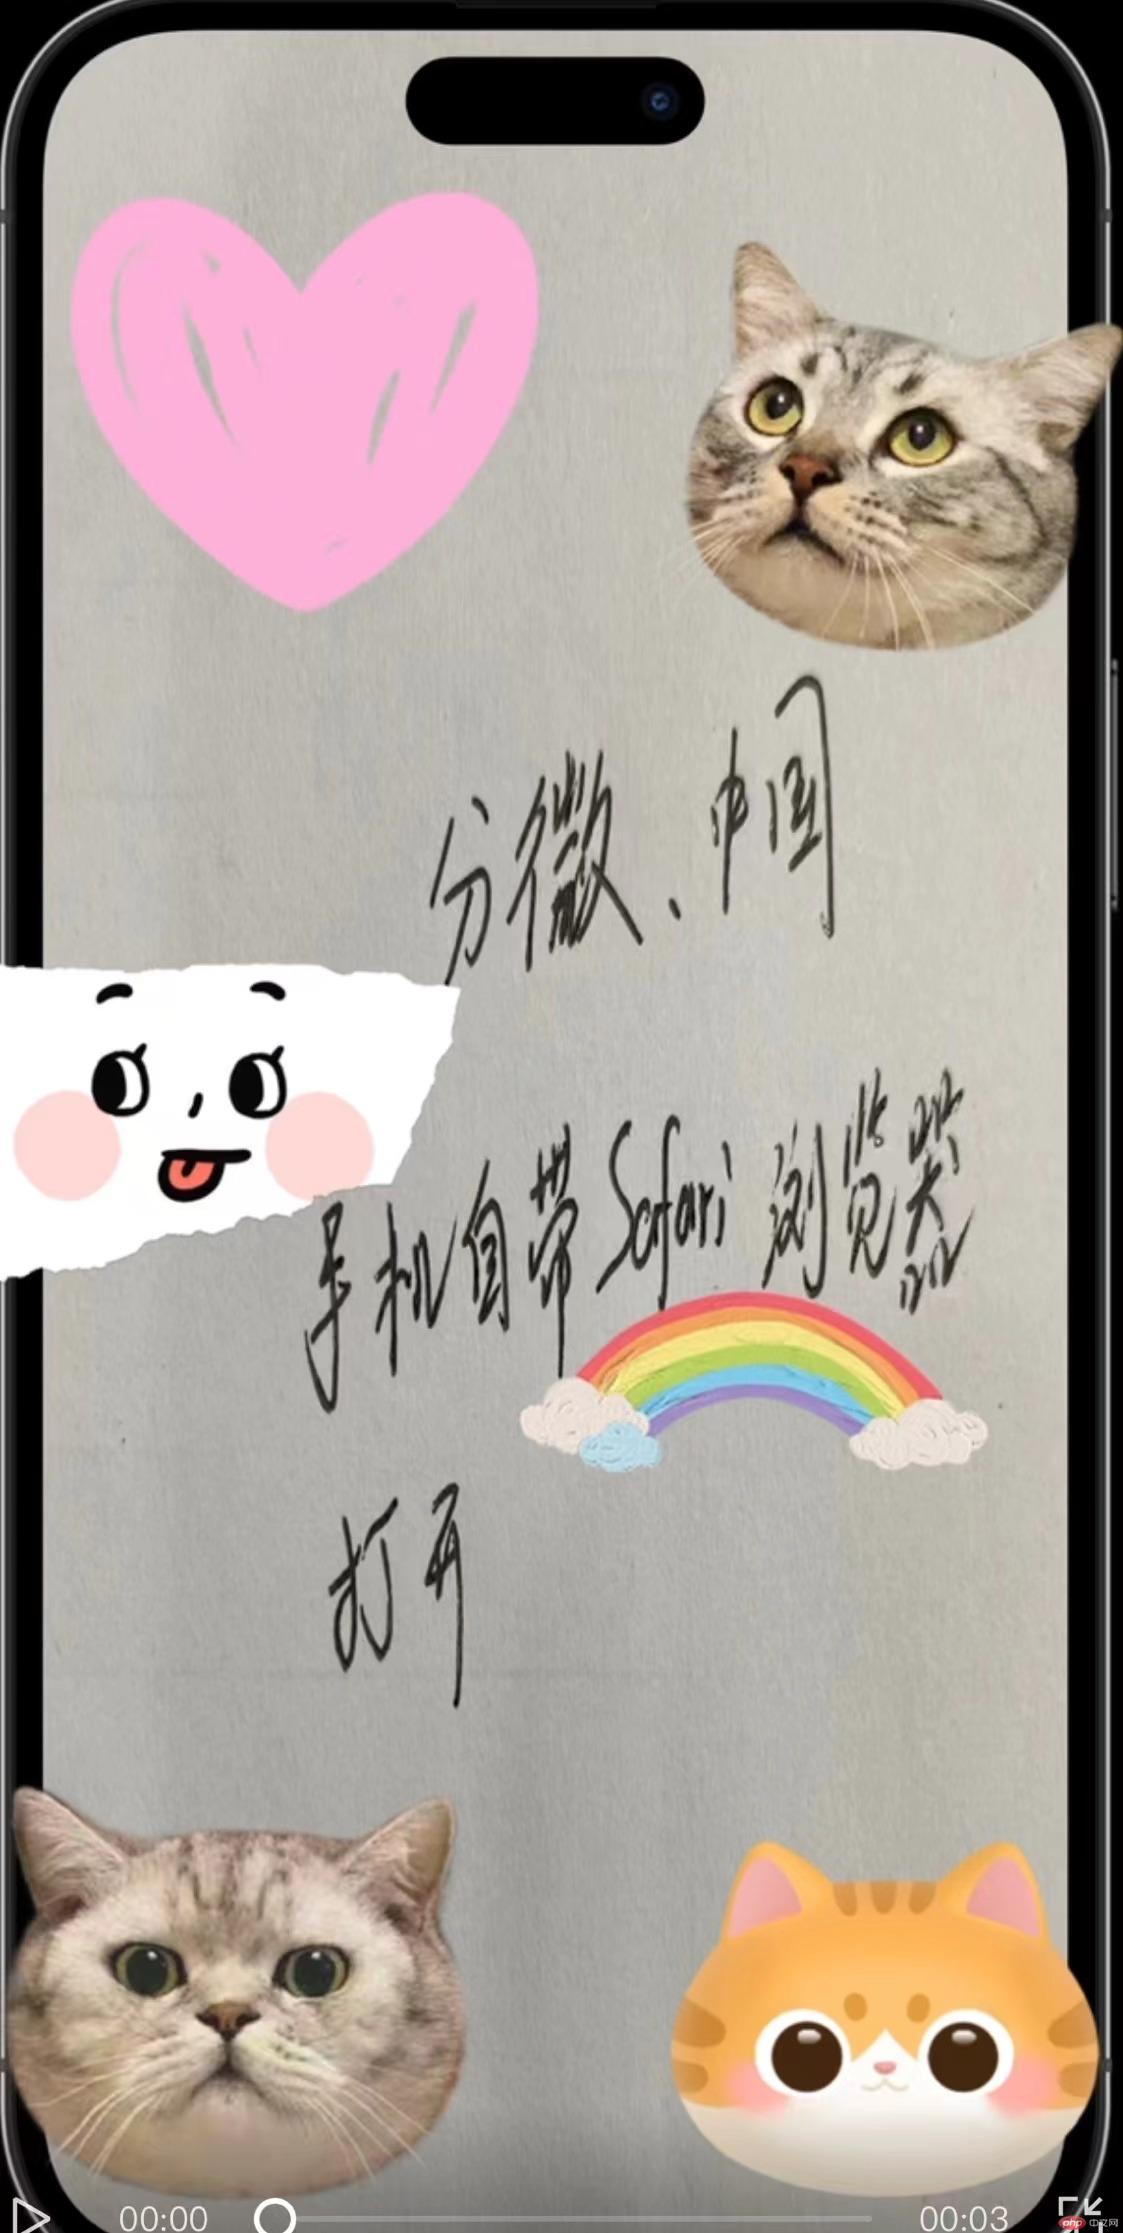 分微、中国
手机自带Safari浏览器
打开
00:00 00:03
php 中文网